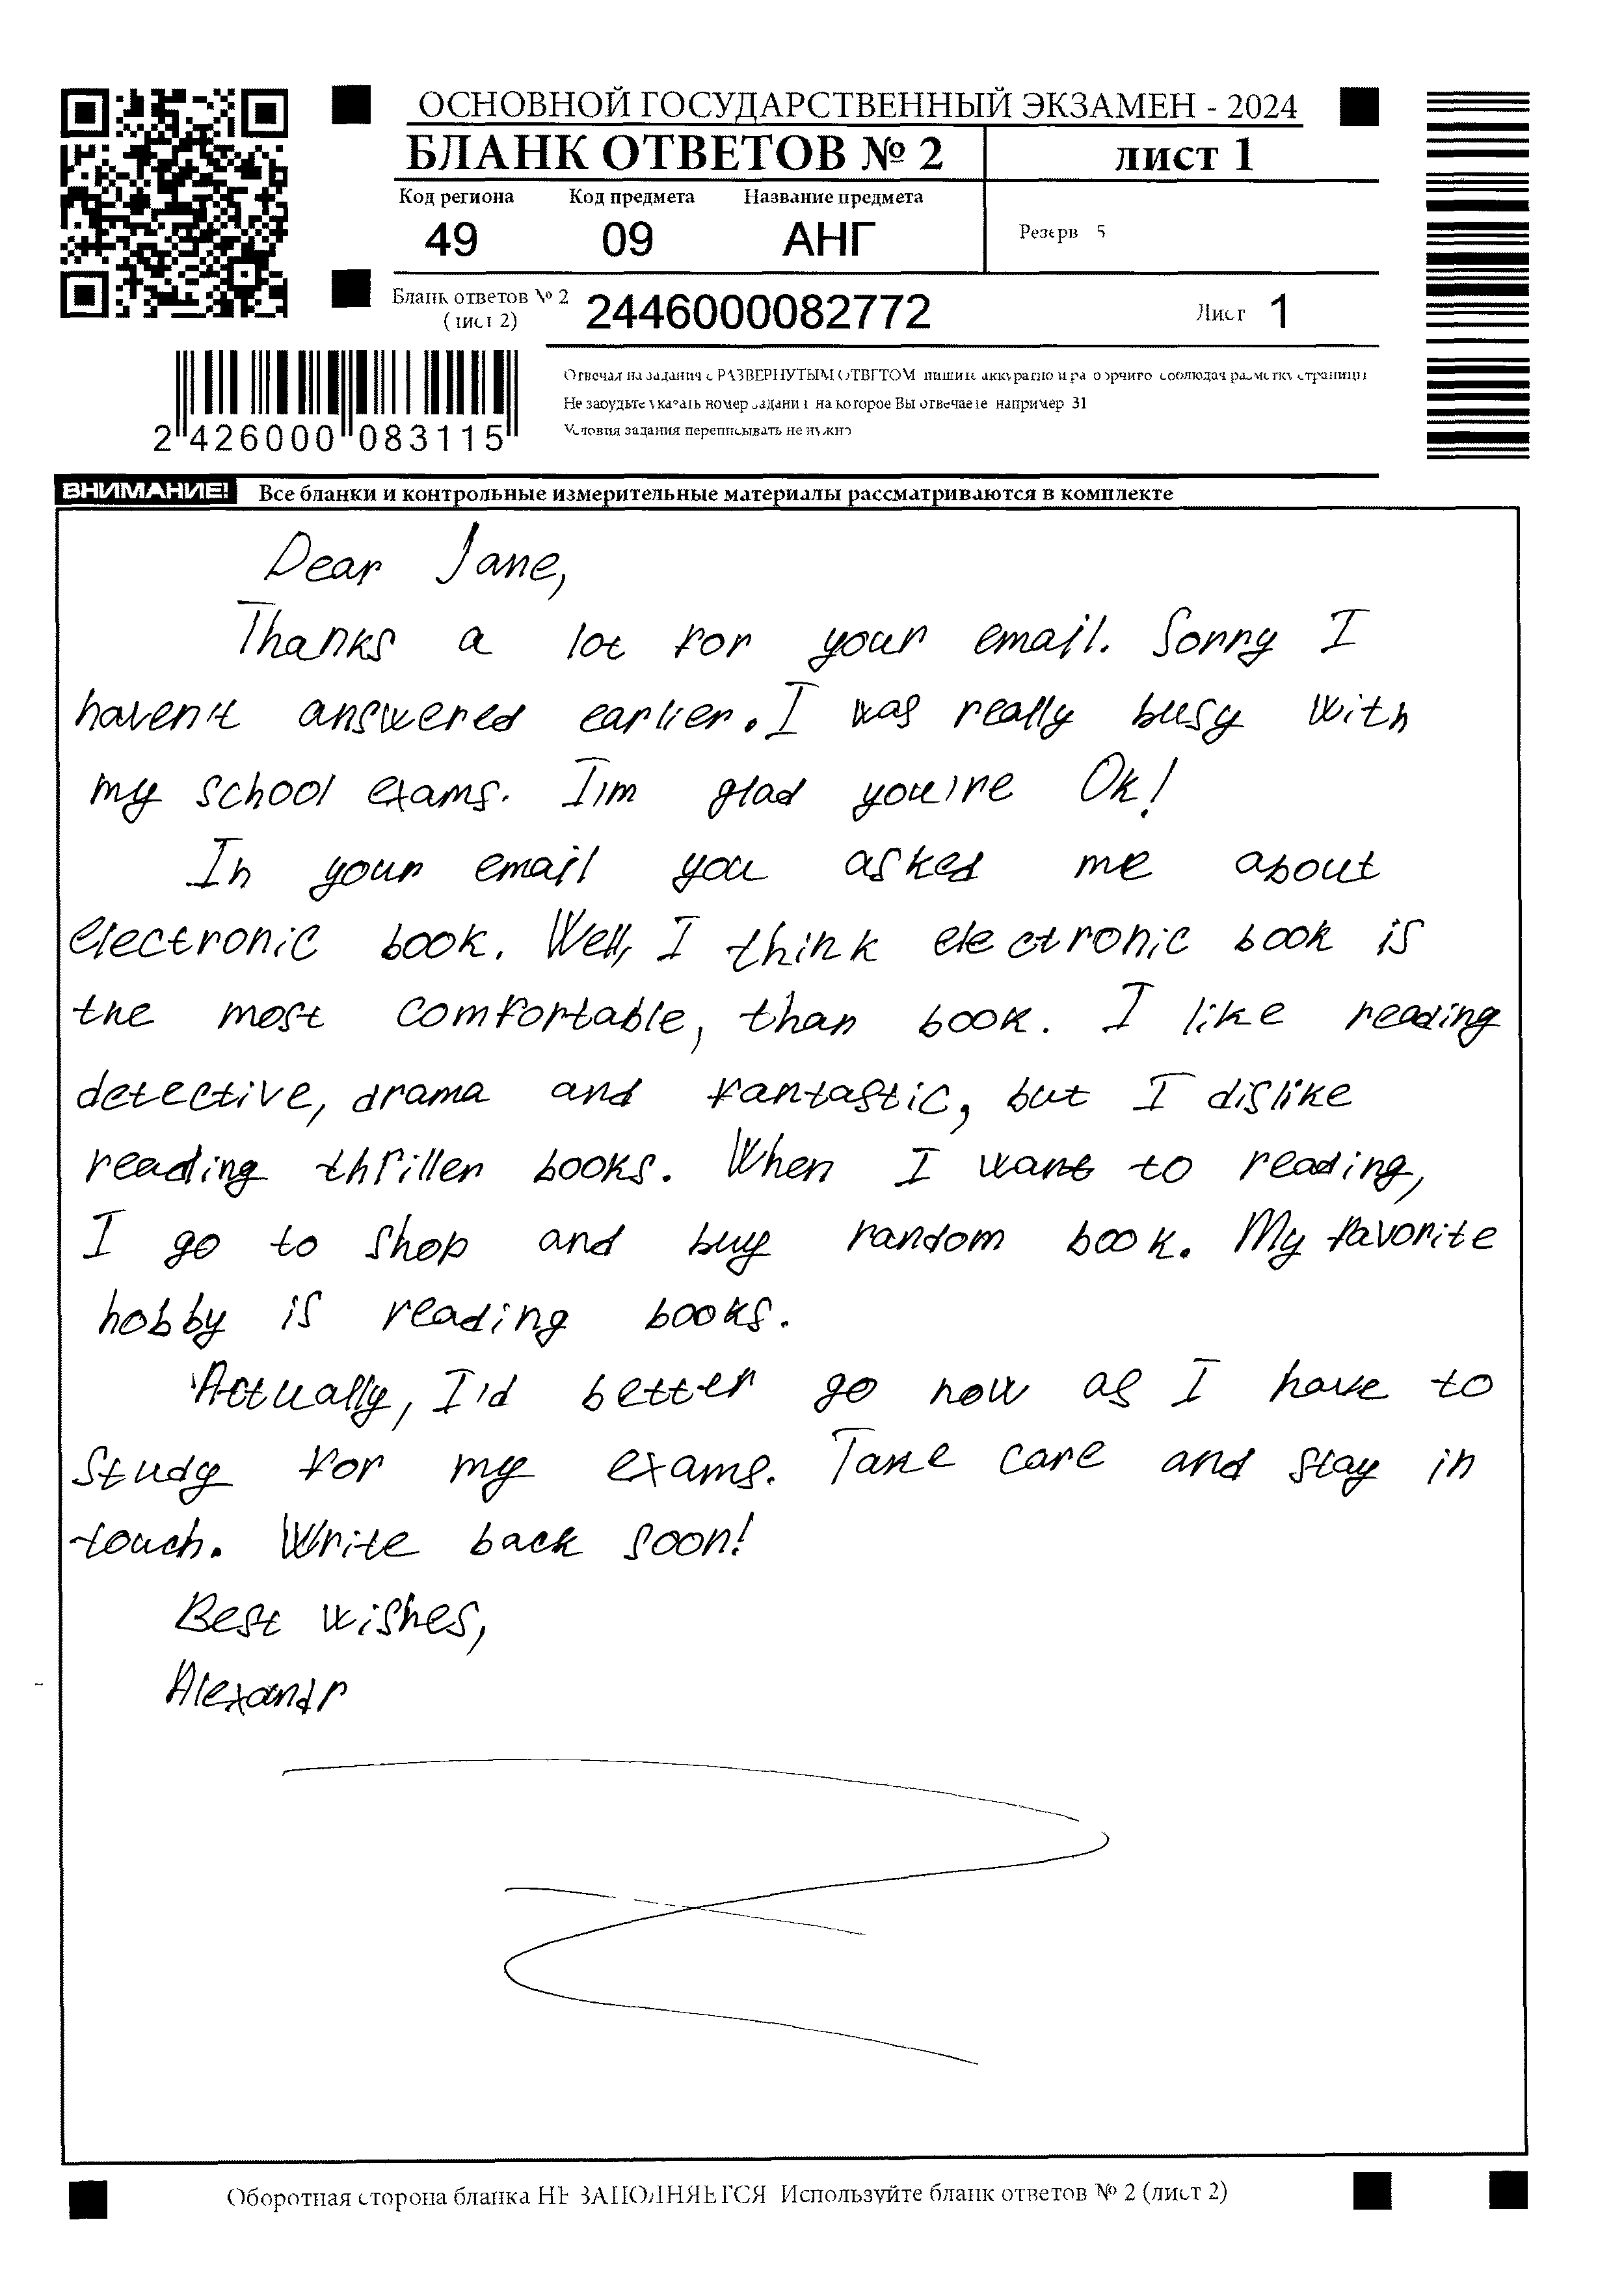 ОСНОВНОЙ ГОСУДАРСТВЕННЫЙ ЭКЗАМЕН - 2024
БЛАНК ОТВЕТОВ № 2 лист 1
Код региона Код предмета Название предмета
49 09 АНГ Резерв 5
Бланк ответов № 2
(лист 2) 2446000082772 Лист 1
2 426000 083115
Отвечая на задания с РАЗВЕРНУТЫМ ОТВЕТОМ пишите аккуратно и разборчиво соблюдая разметку страницы
Не забудьте указать номер задания на которое Вы отвечаете например 31
Условия задания переписывать не нужно
ВНИМАНИЕ! Все бланки и контрольные измерительные материалы рассматриваются в комплекте
Dear Jane,
Thanks a lot for your email. Sorry I
haven't answered earlier. I was really busy with
my school exams. I'm glad you're Ok!
In your email you asked me about
electronic book. Well, I think electronic book is
the most comfortable, than book. I like reading
detective, drama and fantastic, but I dislike
reading thriller books. When I want to reading,
I go to shop and buy random book. My favorite
hobby is reading books.
Actually, I'd better go now as I have to
study for my exams. Take care and stay in
touch. Write back soon!
Best wishes,
Alexandr
Оборотная сторона бланка НЕ ЗАПОЛНЯЕТСЯ Используйте бланк ответов № 2 (лист 2)